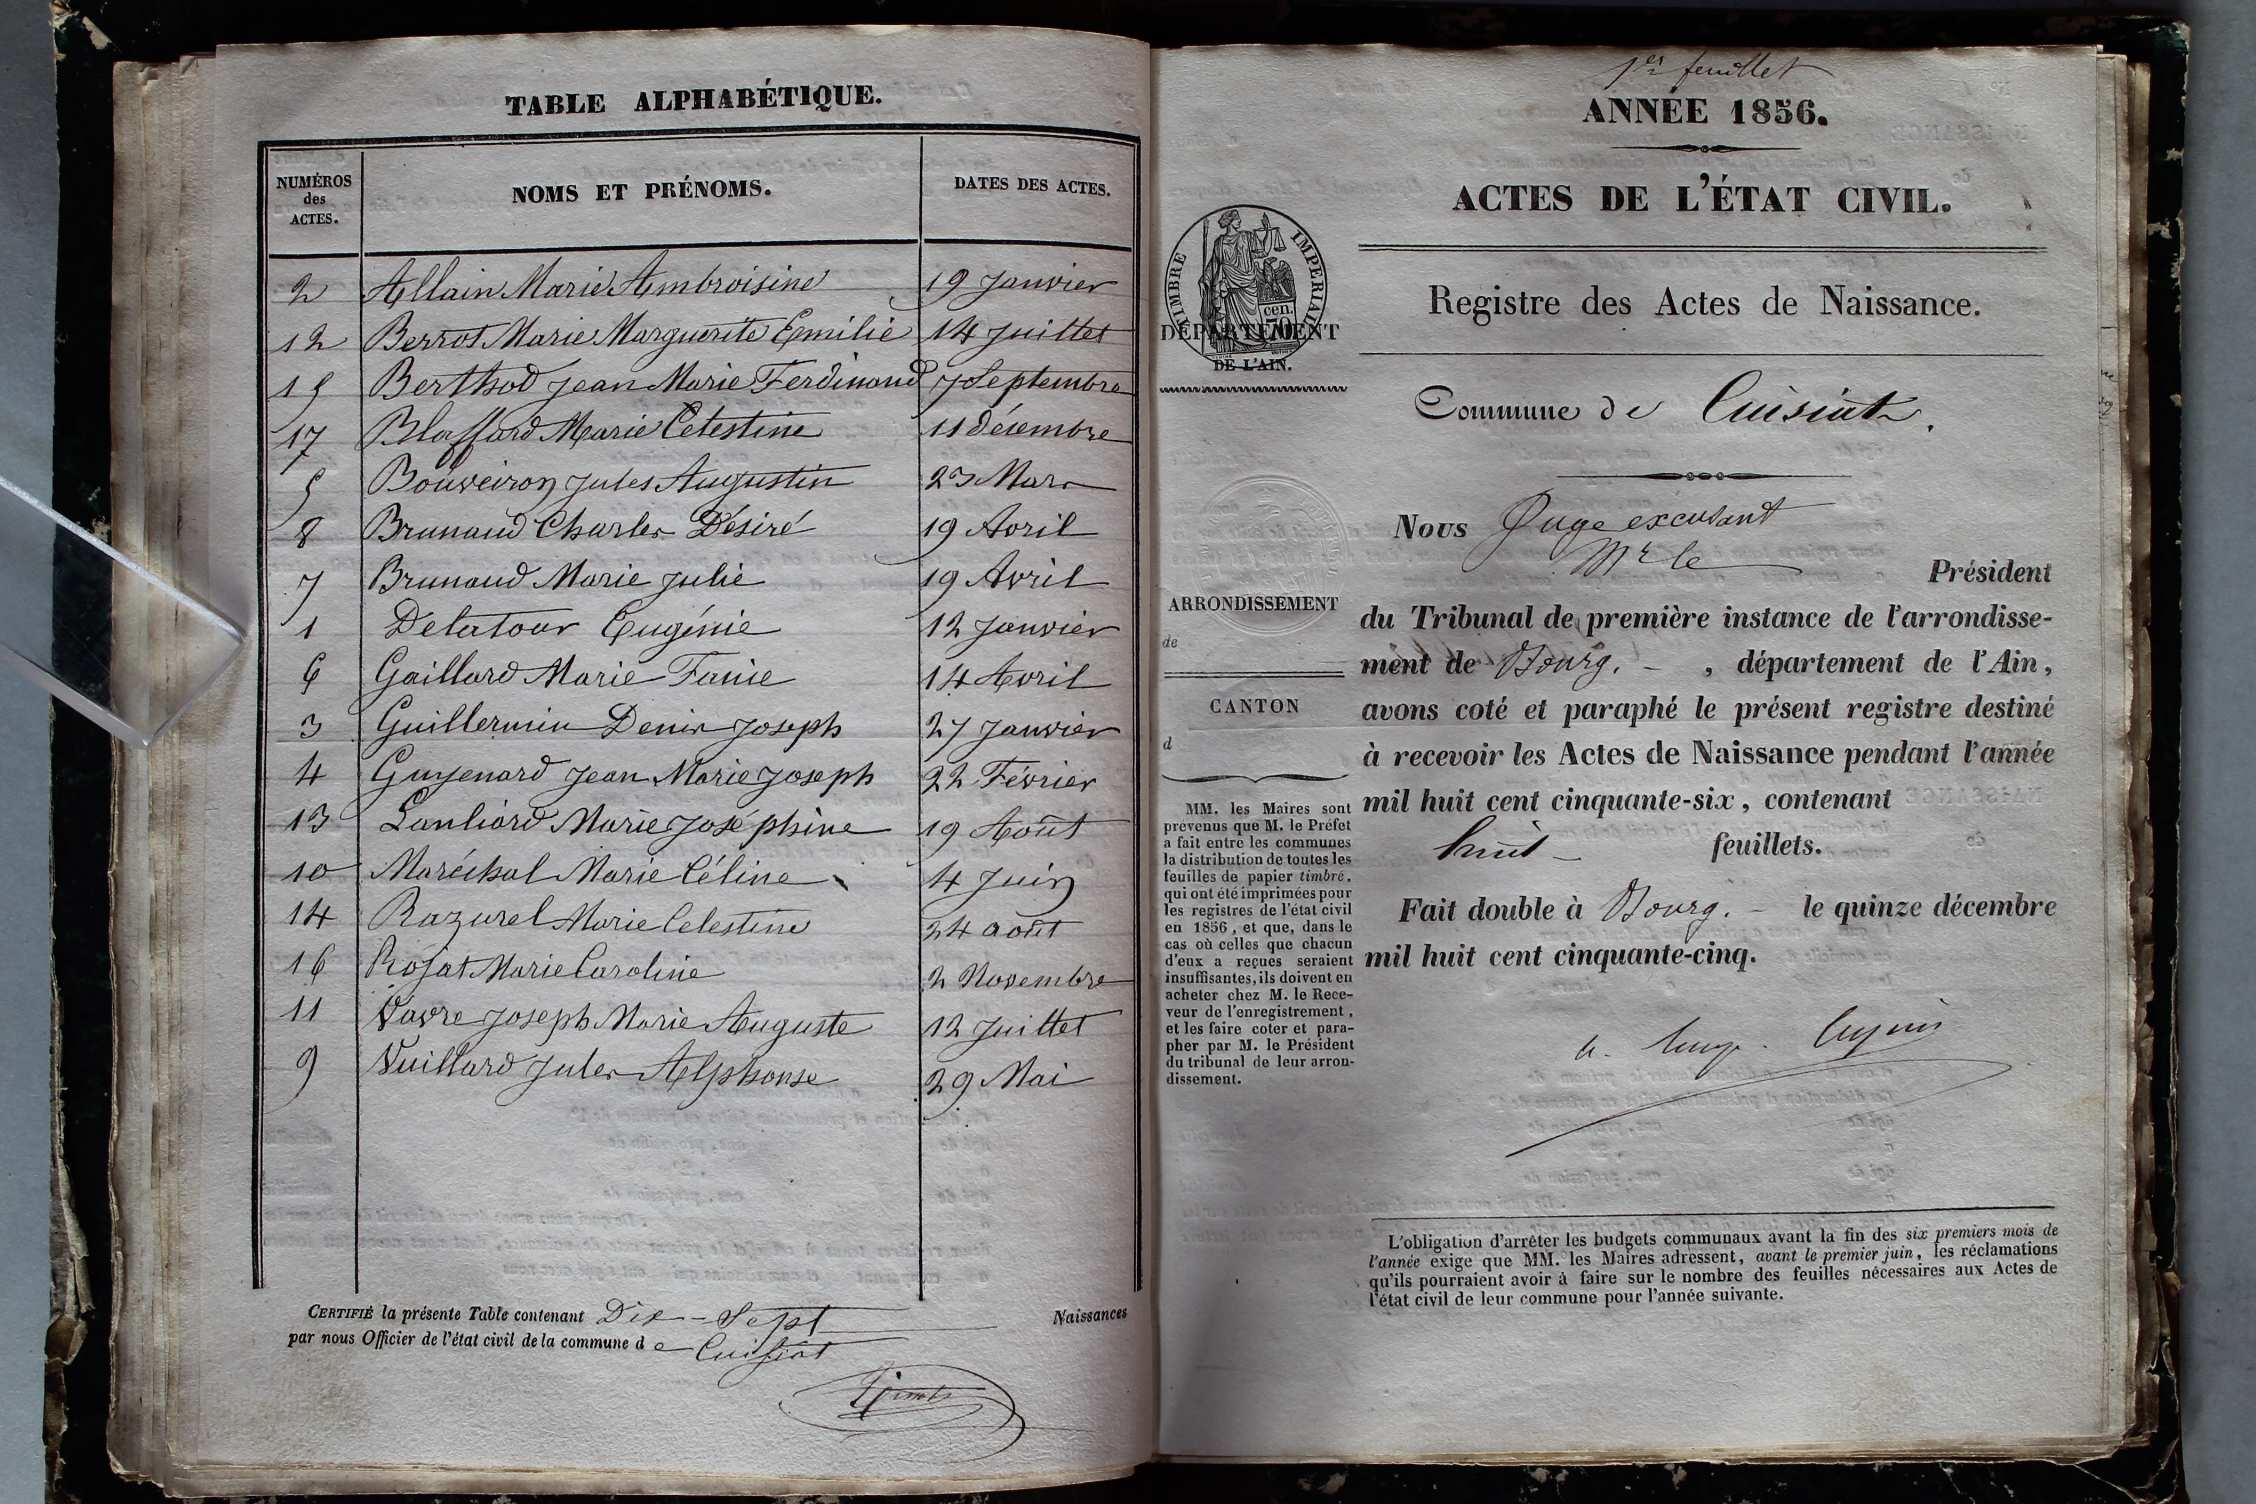 TABLE ALPHABÉTIQUE.
NUMÉROS des ACTES. NOMS ET PRÉNOMS. DATES DES ACTES.
2 Allain Marie Ambroisine 19 Janvier
12 Berrot Marie Marguerite Emilie 14 Juillet
15 Berthod Jean Marie Ferdinand 7 Septembre
17 Blaffard Marie Celestine 11 décembre
5 Bouveiron Jules Augustin 23 Mars
8 Brunaud Charles Désiré 19 Avril
7 Brunaud Marie Julie 19 Avril
1 Delatour Eugénie 12 Janvier
6 Gaillard Marie Fanie 14 Avril
3 Guillermin Denis Joseph 27 Janvier
4 Guyenard Jean Marie Joseph 22 Février
13 Lanliard Marie Joséphine 19 Août
10 Maréchal Marie Céline 4 Juin
14 Razurel Marie Celestine 24 août
16 Rojat Marie Caroline 2 Novembre
11 Vavre Joseph Marie Auguste 12 Juillet
9 Vuillard Jules Alphonse 29 Mai
CERTIFIÉ la présente Table contenant Dix-Sept Naissances
par nous Officier de l'état civil de la commune de Cuisiat
1er feuillet
ANNÉE 1856.
ACTES DE L'ÉTAT CIVIL.
Registre des Actes de Naissance.
TIMBRE IMPERIAL
cen.
70
DÉPARTEMENT
DE L'AIN.
ARRONDISSEMENT
de
CANTON
d
MM. les Maires sont
prévenus que M. le Préfet
a fait entre les communes
la distribution de toutes les
feuilles de papier timbré,
qui ont été imprimées pour
les registres de l'état civil
en 1856, et que, dans le
cas où celles que chacun
d'eux a reçues seraient
insuffisantes, ils doivent en
acheter chez M. le Rece-
veur de l'enregistrement,
et les faire coter et para-
pher par M. le Président
du tribunal de leur arron-
dissement.
Commune de Cuisiat.
Nous Juge excusant
Mr le Président
du Tribunal de première instance de l'arrondisse-
ment de Bourg. , département de l'Ain,
avons coté et paraphé le présent registre destiné
à recevoir les Actes de Naissance pendant l'année
mil huit cent cinquante-six, contenant
huit feuillets.
Fait double à Bourg. le quinze décembre
mil huit cent cinquante-cinq.
L'obligation d'arrêter les budgets communaux avant la fin des six premiers mois de
l'année exige que MM. les Maires adressent, avant le premier juin, les réclamations
qu'ils pourraient avoir à faire sur le nombre des feuilles nécessaires aux Actes de
l'état civil de leur commune pour l'année suivante.